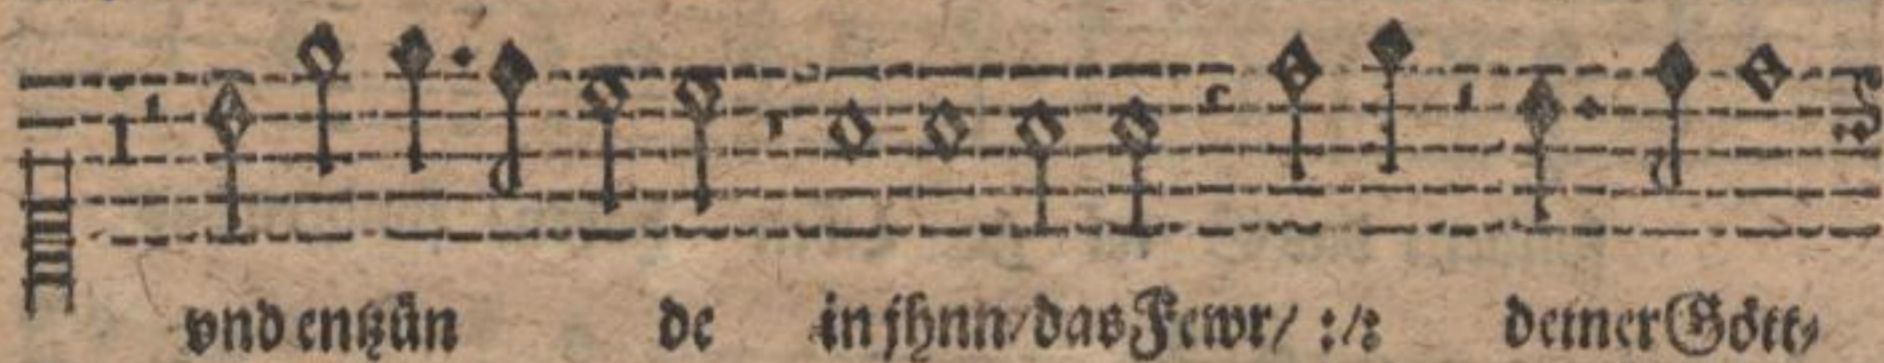 vnd entzün de in jhnn/das Fewr/ :/: deiner Gött⸗